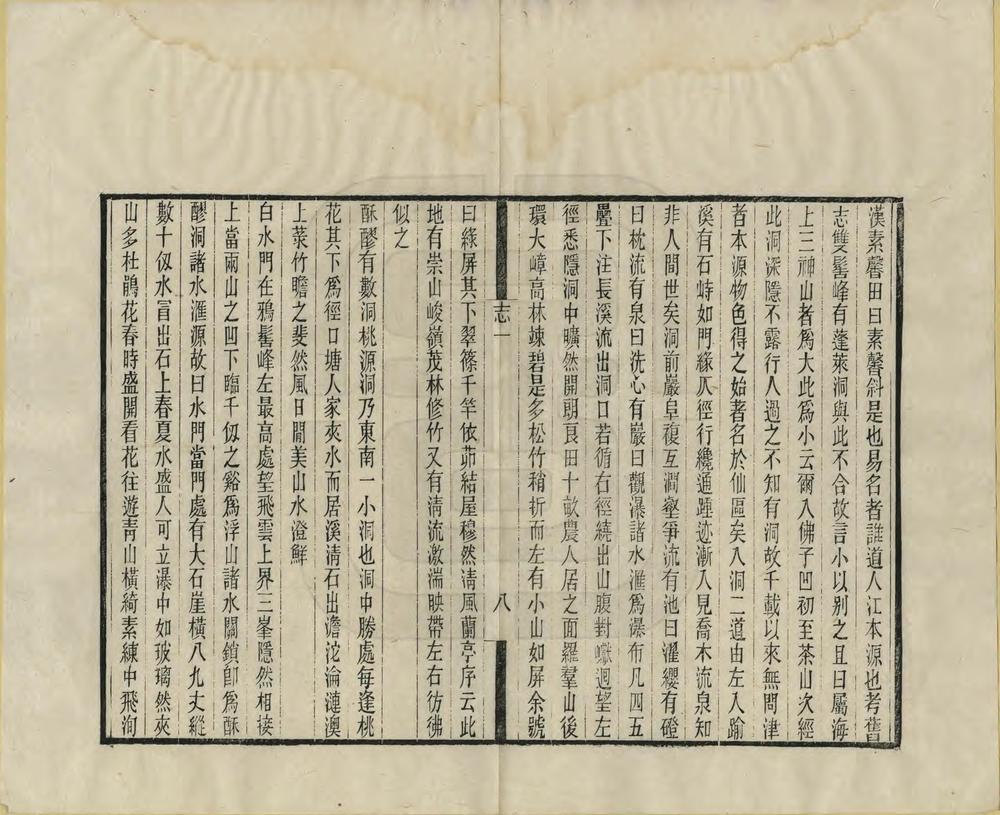 漢素馨田曰素馨斜是也易名者誰道人江本源也考舊
志雙髻峰有蓬萊洞與此不合故言小以別之且曰屬海
上三神山者爲大此爲小云爾入佛子凹初至茶山次經
此洞深隱不露行人過之不知有洞故千載以來無問津
者本源物色得之始著名於仙區矣入洞二道由左入踰
溪有石峙如門緣仄徑行纔通踵迹漸入見喬木流泉知
非人間世矣洞前巖阜複互澗壑爭流有池曰濯纓有磴
曰枕流有泉曰洗心有巖曰觀瀑諸水滙爲瀑布凡四五
疊下注長溪流出洞口若循右徑繞出山腹對巘迴望左
徑悉隱洞中曠然開朗良田十畝農人居之面羅羣山後
環大嶂高林竦碧是多松竹稍折而左有小山如屏余號
志一
八
曰綠屏其下翠篠千竿依茆結屋穆然淸風蘭亭序云此
地有崇山峻嶺茂林修竹又有淸流激湍映帶左右彷彿
似之
酥醪有數洞桃源洞乃東南一小洞也洞中勝處每逢桃
花其下爲徑口塘人家夾水而居溪淸石出澹沱淪漣澳
上菉竹瞻之斐然風日閒美山水澄鮮
白水門在鴉髻峰左最高處望飛雲上界三峯隱然相接
上當兩山之凹下臨千仭之谿爲浮山諸水關鎖卽爲酥
醪洞諸水滙源故曰水門當門處有大石崖橫八九丈縱
數十仭水冐出石上春夏水盛人可立瀑中如玻璃然夾
山多杜鵑花春時盛開看花往遊靑山橫綺素練中飛洵